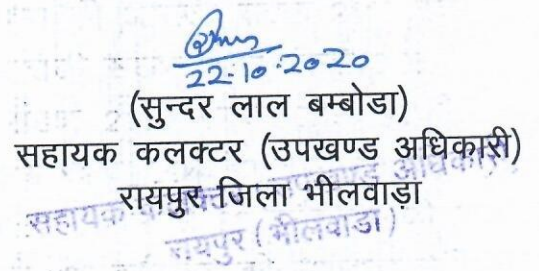 22.10.2020
(सुन्दर लाल बम्बोडा)
सहायक कलक्टर (उपखण्ड अधिकारी)
रायपुर जिला भीलवाड़ा
सहायक कलक्टर उपखण्ड अधिकारी
रायपुर (भीलवाडा)